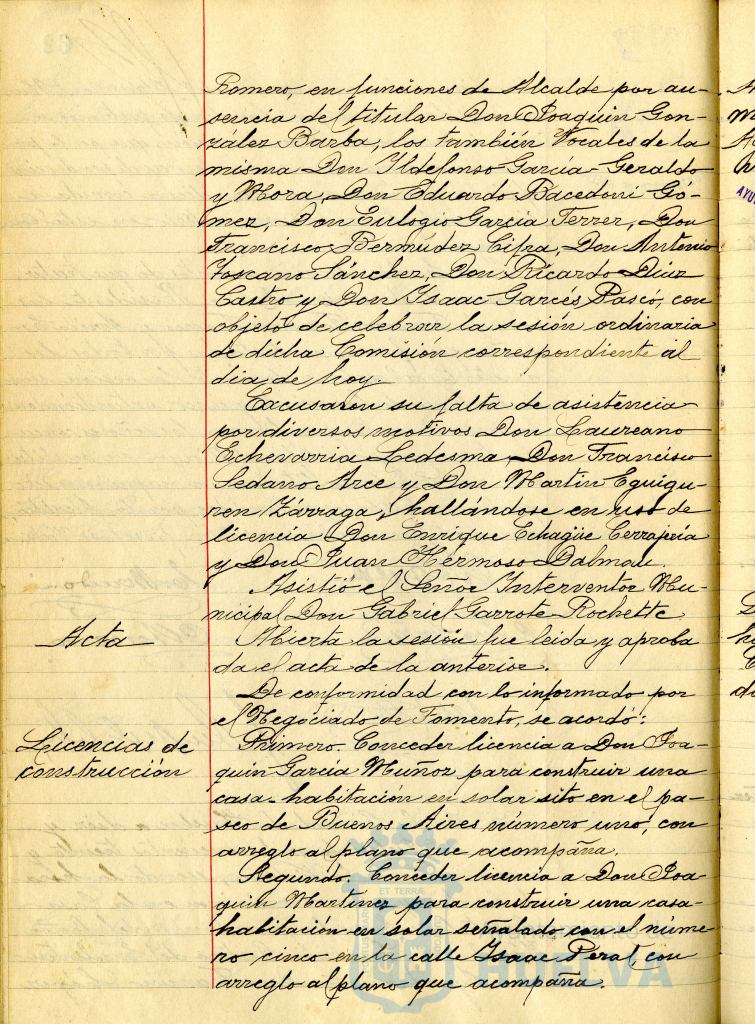 Romero, en funciones de Alcalde por au-
sencia del titular Don Joaquin Gon-
zález Barba, los también Vocales de la
misma Don Ildefonso García-Geraldo
y Mora, Don Eduardo Bacedoni Gó-
mez, Don Eulogio García Ferrer, Don
Francisco Bermúdez Cifra, Don Antonio
Toscano Sánchez, Don Ricardo Diaz
Castro y Don Isaac Garcés Pascó, con
objeto de celebrar la sesión ordinaria
de dicha Comisión correspondiente al
dia de hoy.
Excusaron su falta de asistencia
por diversos motivos Don Laureano
Echevarria Ledesma, Don Francisco
Sedano Arce y Don Martin Eguigu-
ren Zárraga, hallándose en uso de
licencia Don Enrique Echagüe Cerrajería
y Don Juan Hermoso Dalmau.
Asistió el Señor Interventor Mu-
nicipal Don Gabriel Garrote Rochette
Acta
Abierta la sesión fue leida y aproba
da el acta de la anterior.
De conformidad con lo informado por
el Negociado de Fomento, se acordó:
Licencias de
construcción
Primero. Conceder licencia a Don Joa-
quin García Muñoz para construir una
casa-habitación en solar sito en el pa-
seo de Buenos Aires número uno, con
arreglo al plano que acompaña.
Segundo. Conceder licencia a Don Joa-
quin Martinez para construir una casa-
habitación en solar señalado con el núme-
ro cinco en la calle Isaac Peral, con
arreglo al plano que acompaña.
ET TERRÆ
HUELVA